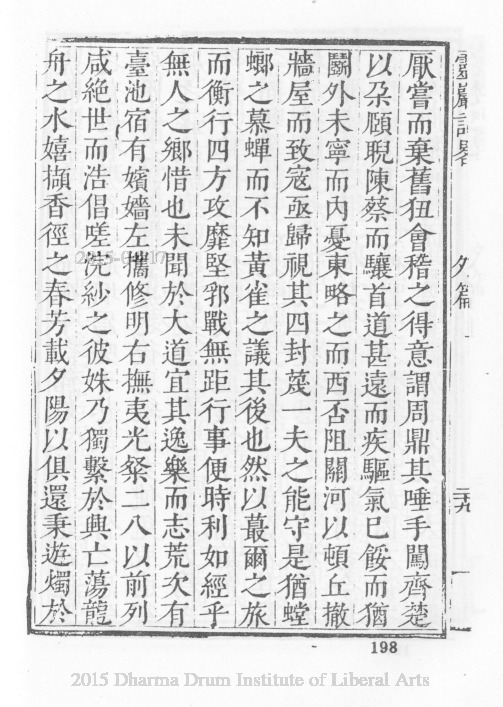 靈巖記畧
外篇
三九
厭嘗而棄舊狃會稽之得意謂周鼎其唾手闖齊楚
以朶頥睨陳蔡而驤首道甚遠而疾驅氣巳餒而猶
鬭外未寧而内憂東略之而西否阻關河以頓丘撤
牆屋而致寇亟歸視其四封蔑一夫之能守是猶螳
螂之慕蟬而不知黃雀之議其後也然以蕞爾之旅
而衡行四方攻靡堅郛戰無距行事便時利如經乎
無人之鄉惜也未聞於大道宜其逸樂而志荒次有
臺池宿有嬪嬙左攜修明右撫夷光粲二八以前列
咸絶世而浩倡嗟浣紗之彼姝乃獨繫於興亡蕩龍
舟之水嬉擷香徑之春芳載夕陽以俱還秉遊燭於
198
2015 Dharma Drum Institute of Liberal Arts